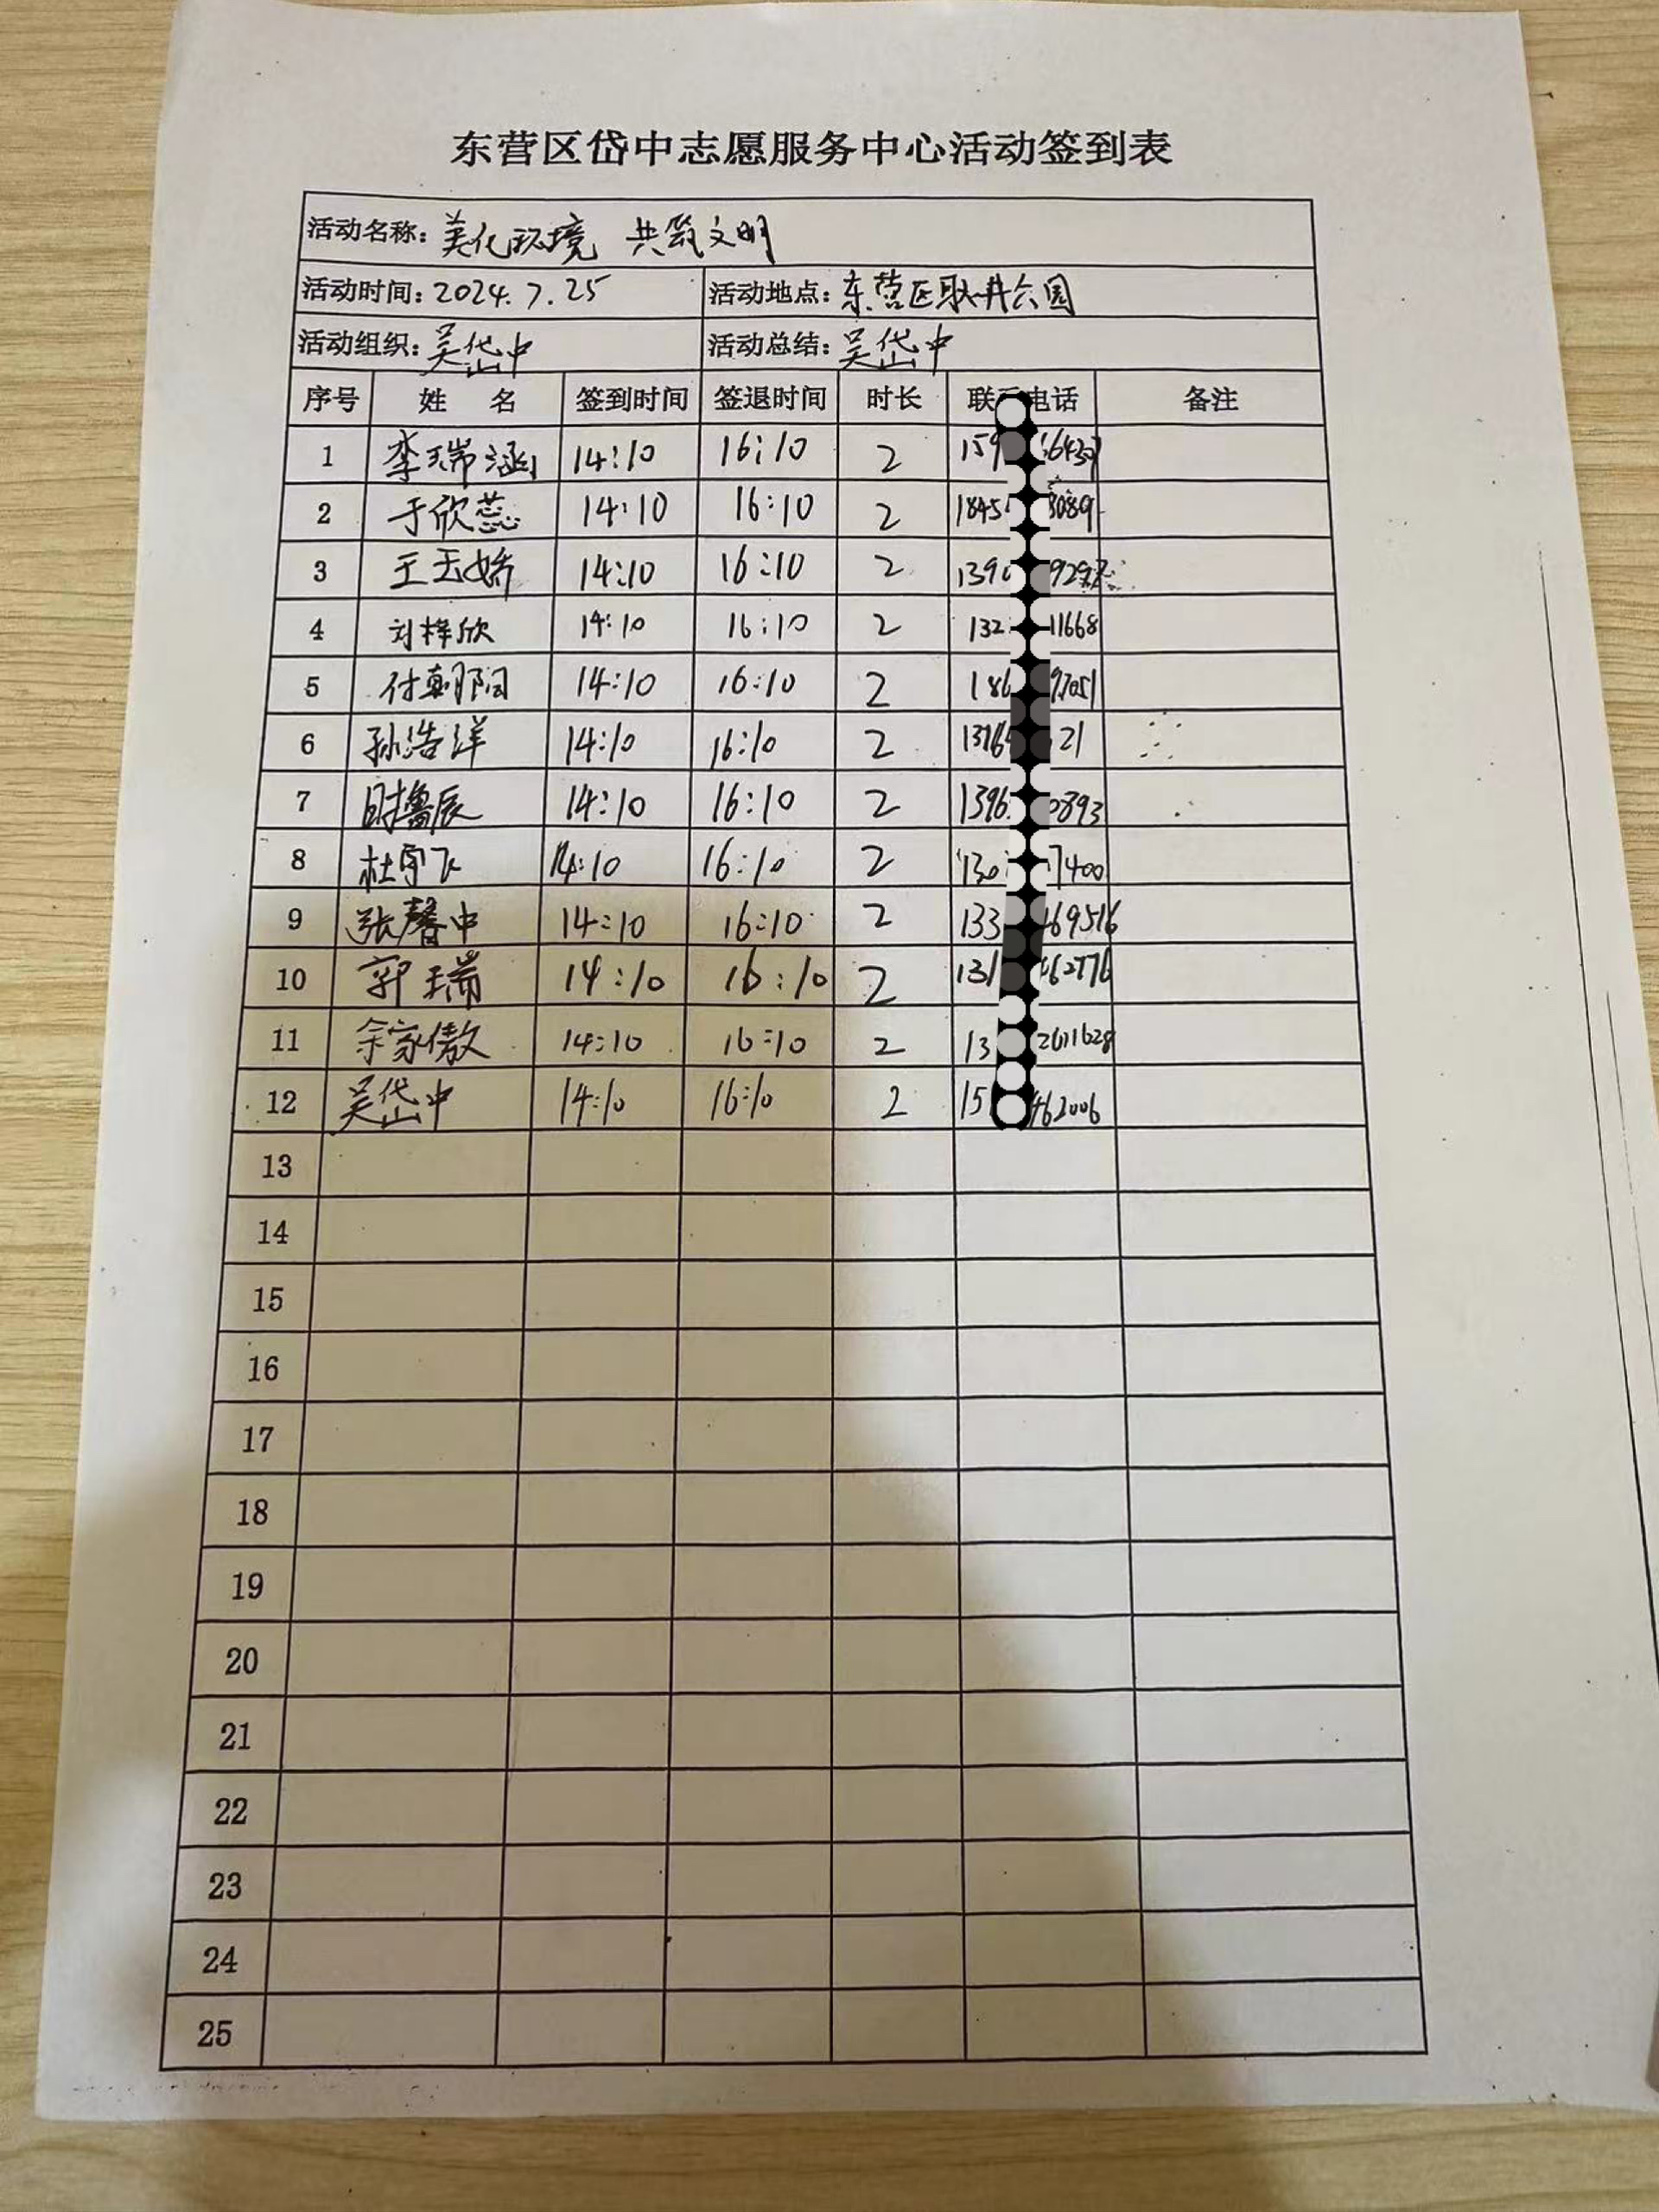 东营区岱中志愿服务中心活动签到表
活动名称：美化环境 共筑文明
活动时间：2024.7.25 活动地点：东营区耿井公园
活动组织：吴岱中 活动总结：吴岱中
序号 姓 名 签到时间 签退时间 时长 联 电话 备注
1 李瑞涵 14:10 16:10 2 159 6437
2 于欣蕊 14:10 16:10 2 1845 8089
3 王玉娇 14:10 16:10 2 1390 9297
4 刘梓欣 14:10 16:10 2 132 11668
5 付朝阳 14:10 16:10 2 186 97051
6 孙浩洋 14:10 16:10 2 1376 21
7 时鲁辰 14:10 16:10 2 1396 0893
8 杜宇飞 14:10 16:10 2 130 7400
9 张馨中 14:10 16:10 2 133 469516
10 郭瑞 14:10 16:10 2 131 462776
11 余家傲 14:10 16:10 2 13 2611628
12 吴岱中 14:10 16:10 2 15 462006
13
14
15
16
17
18
19
20
21
22
23
24
25